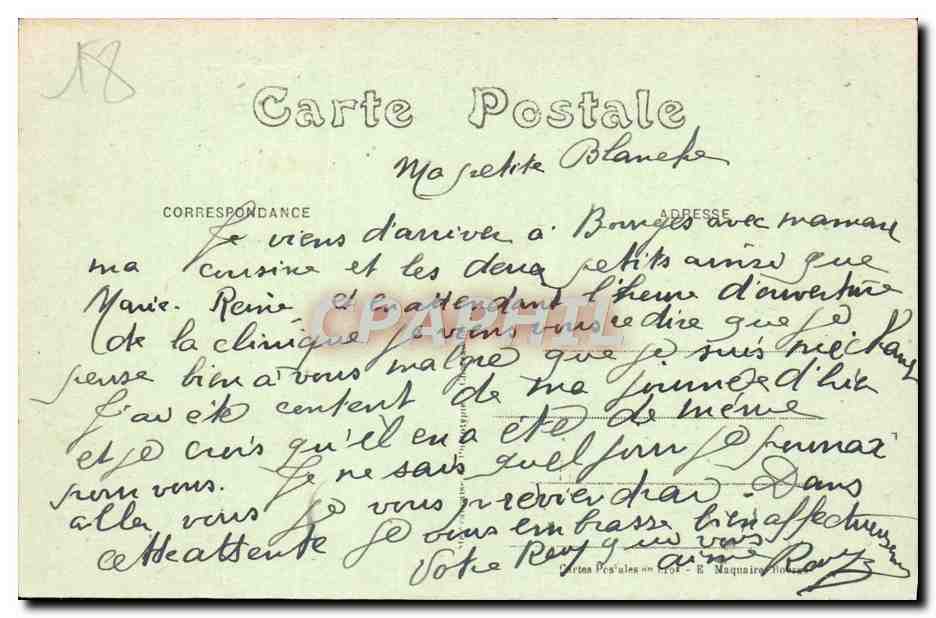 18
Carte Postale
Ma petite Blanche
CORRESPONDANCE
ADRESSE
Je viens d'arriver à Bourges avec maman
ma cousine et les deux petits ainsi que
Marie-Reine et en attendant l'heure d'ouverture
de la clinique je viens vous redire que je
pense bien à vous malgré que je suis méchant
J'ai été content de ma journée d'hier
et je crois qu'il en a été de même
pour vous. Je ne sais quel jour je pourrai
aller vous je vous reviendrai. Dans
cette attente je vous embrasse bien affectueusement
Votre qui vous aime
Cartes Postales en Gros - E. Maquaire, Bourges
CPAPHIL